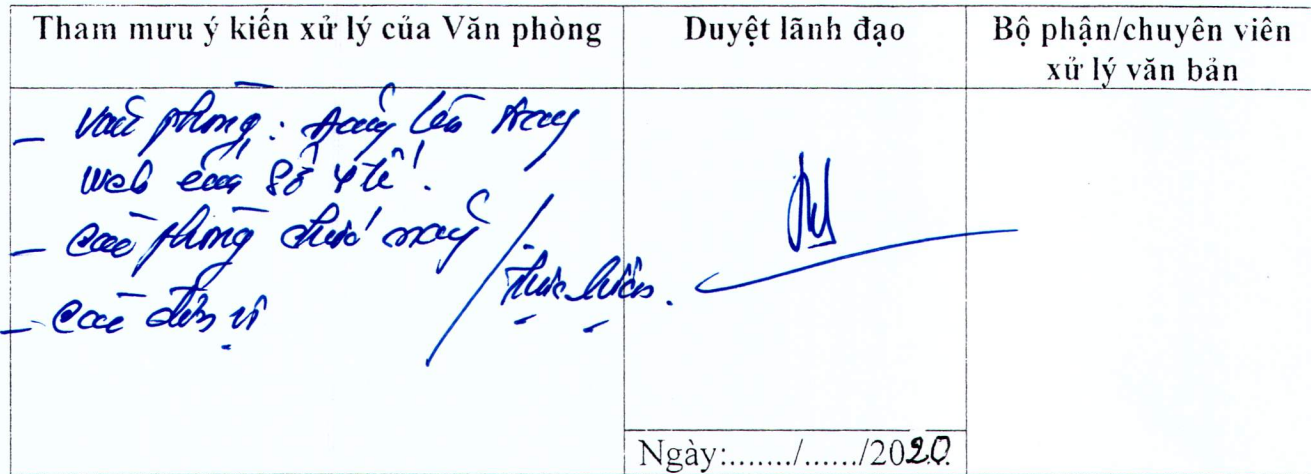 Tham mưu ý kiến xử lý của Văn phòng
Duyệt lãnh đạo
Bộ phận/chuyên viên
xử lý văn bản
_ Văn phòng: Đăng lên trang
web của Sở Y tế.
_ Các phòng chức năng
_ Các đơn vị
/ thực hiện.
Ngày:......./....../2020